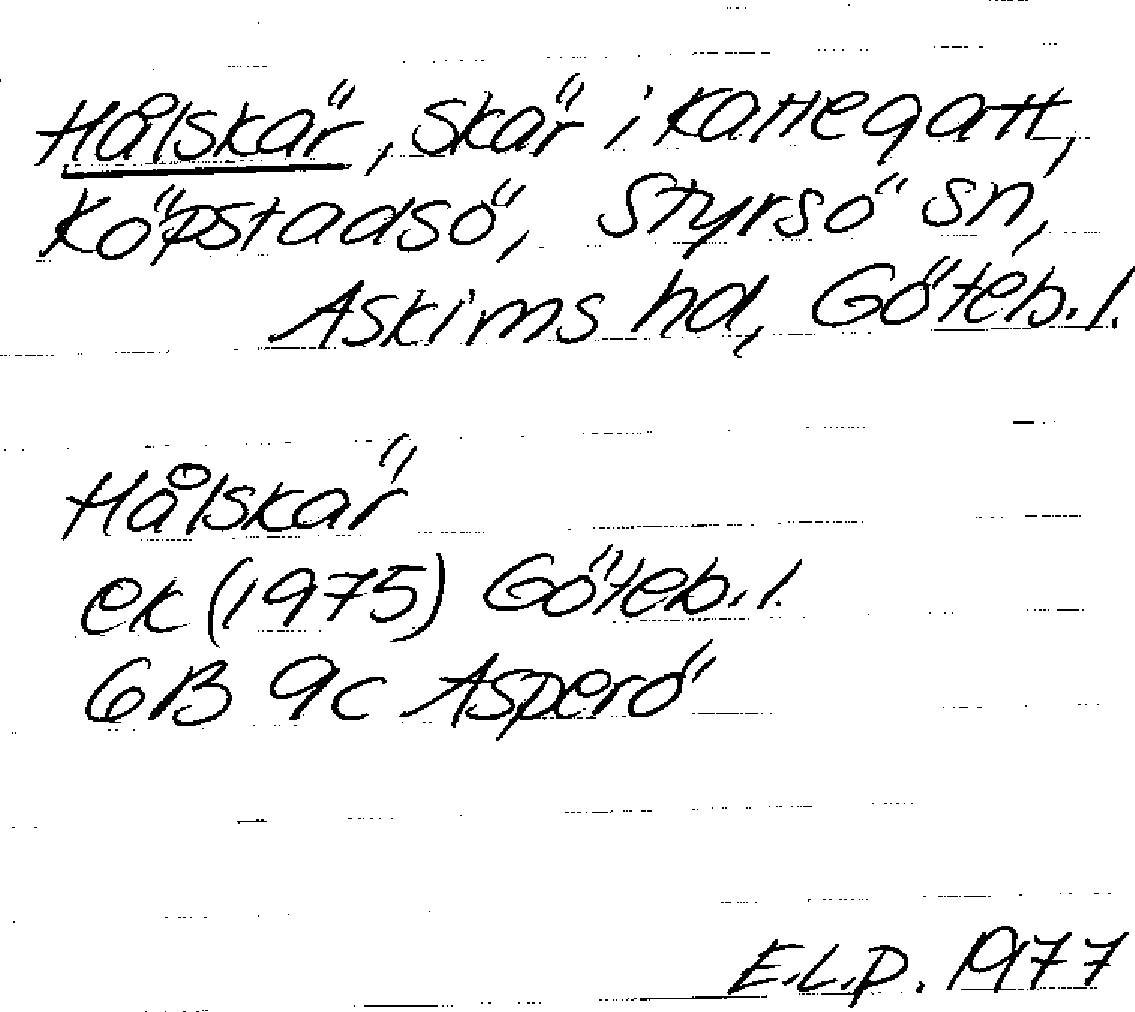 Hålskär, skär i Kattegatt,
Köpstadsö, Styrsö sn,
Askims hd, Göteb. l.
Hålskär
ek (1975) Göteb. l.
6B 9c Asperö
E.L.P. 1977